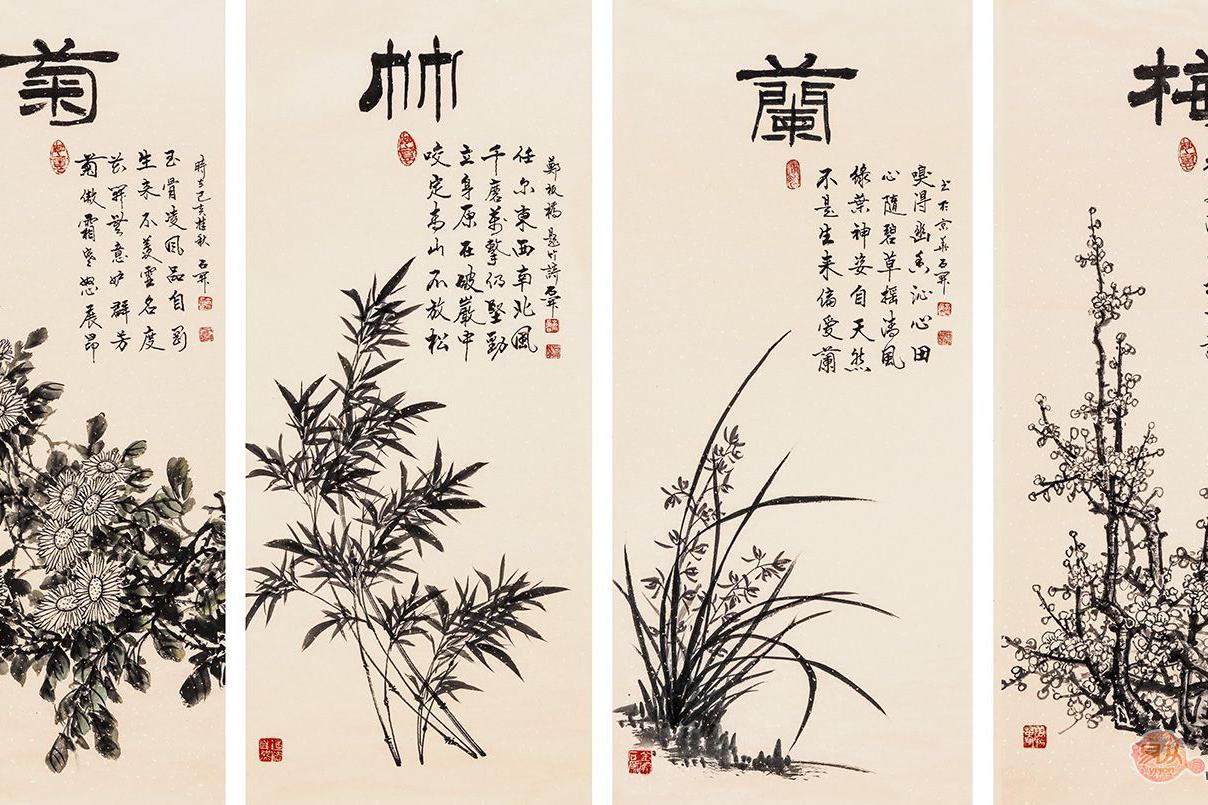 梅
蘭
不是生来偏愛蘭
綠葉神姿自天然
心隨碧草摇清風
嗅得幽香沁心田
书於京華石開
竹
咬定青山不放松
立身原在破巖中
千磨萬擊仍堅勁
任尔東西南北風
鄭板橋題竹詩石開
菊
菊傲霜寒怒展昂
花開無意妒群芳
生来不羡虚名度
玉骨凌風品自
時在己亥桂秋石開
易从